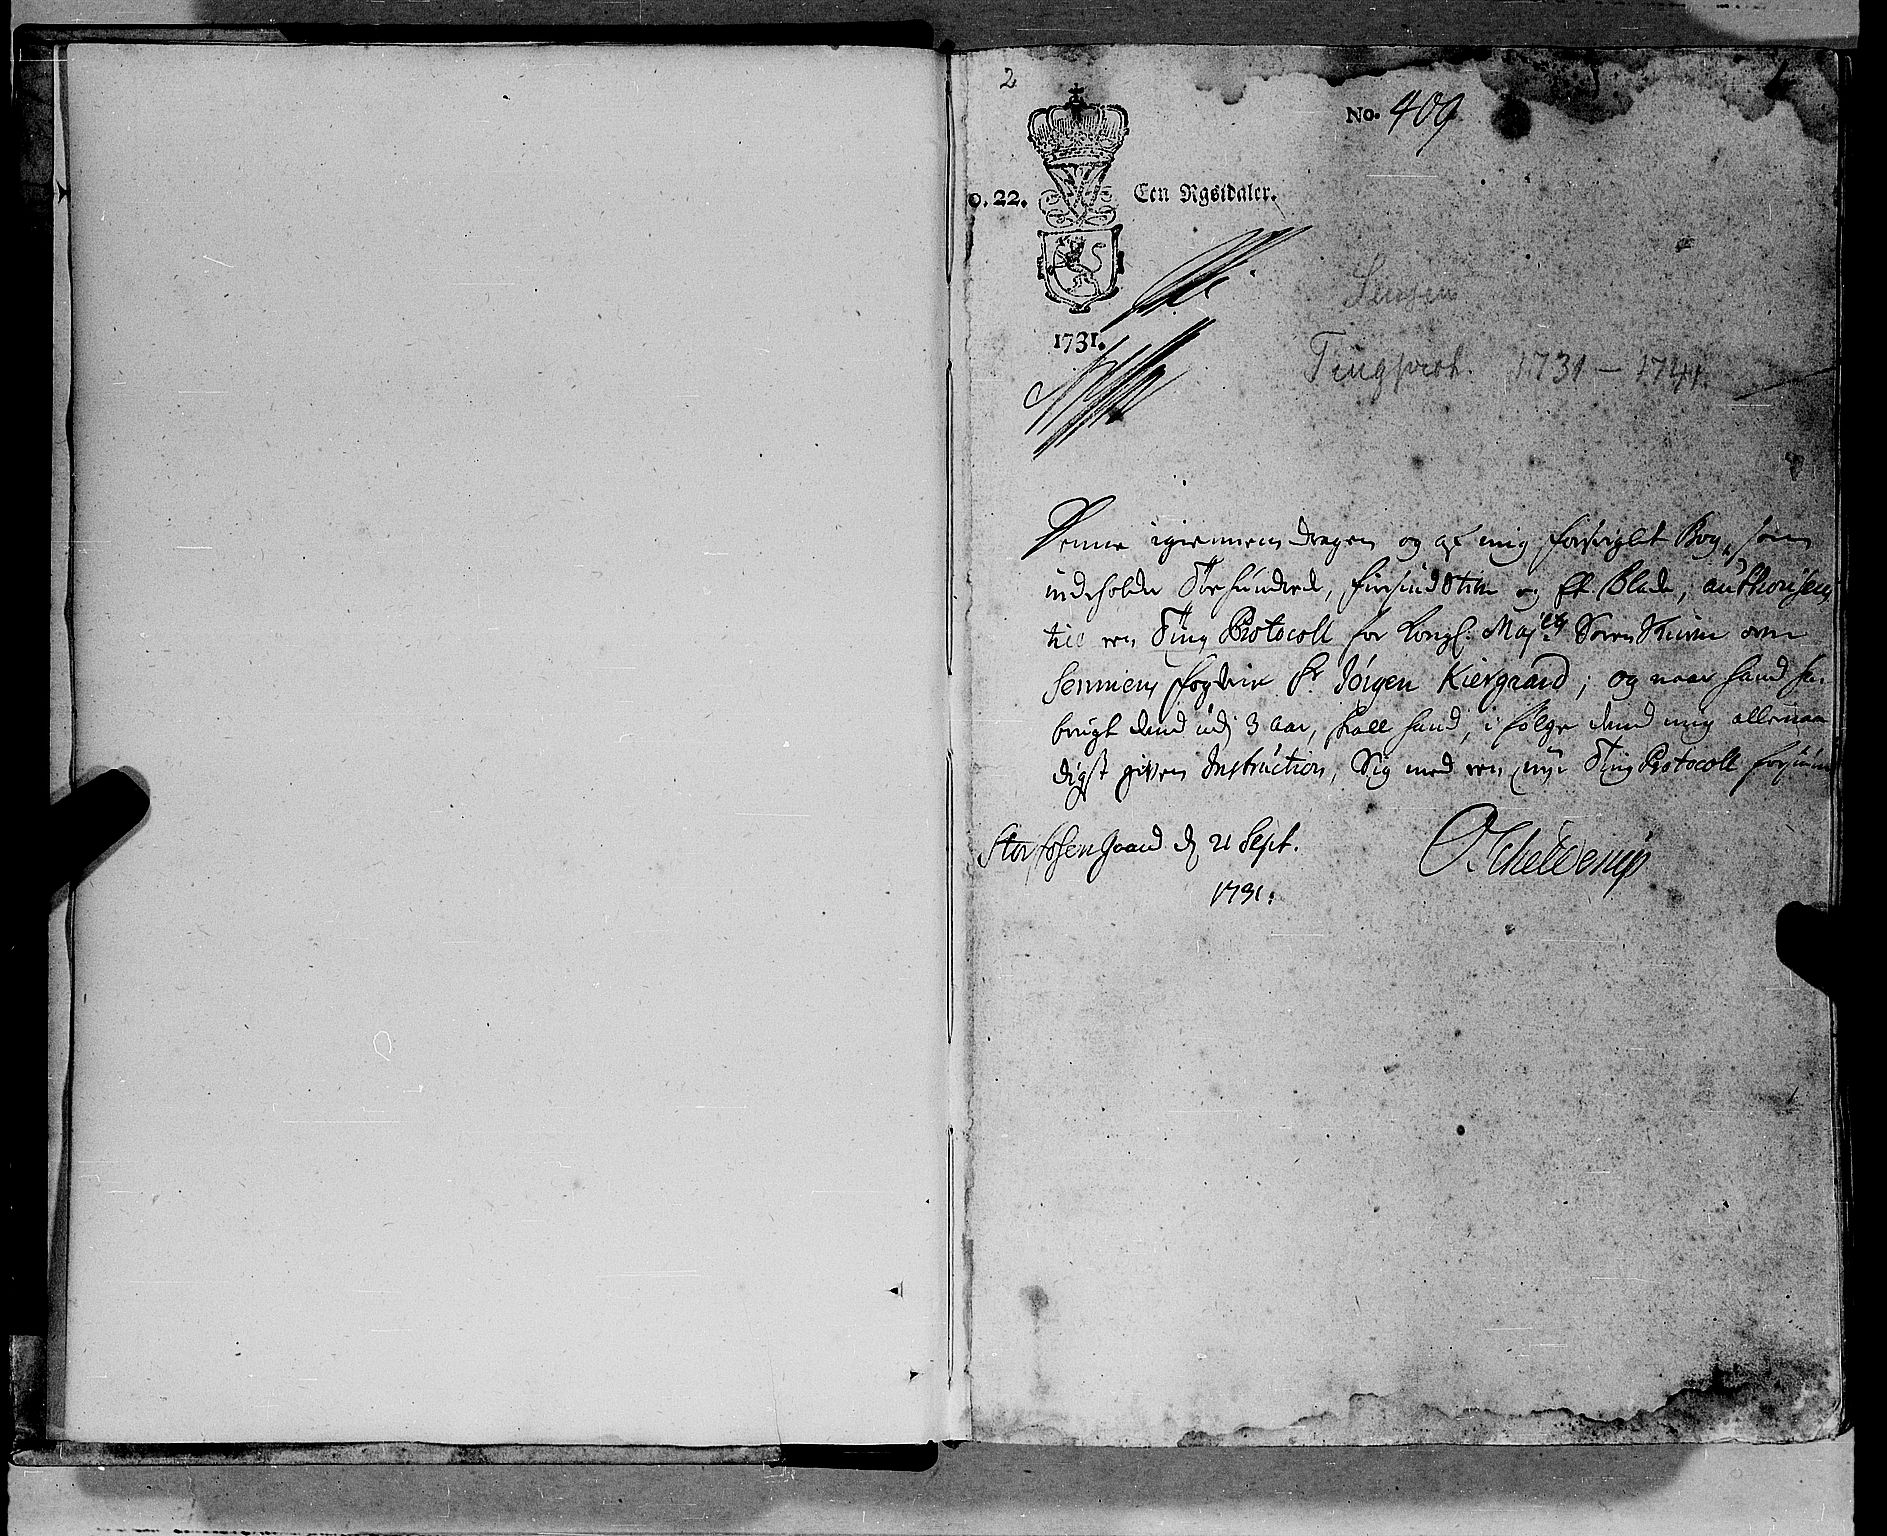 2
No. 409
o. 22.
Een Rgsidaler.
1731.
Senjen
Tingprot. 1731 – 1741.
Denne igiennemdragen og af mig forseiglet Bog, som
indeholder Toehundrede, fiirsindstiue og Et Blade, authoriseris
til een Ting Protocoll for Kongl. Maj:ets Sorenskriver over
Senniens fogderie Sr. Jørgen Kiergaard; og naar hand ha-
brugt dend udj 3 aar, skall hand, i følge dend mig allernaa
digst given Instruction, Sig med een nye Ting Protocoll forsiune
Storfosen Gaard d. 21 Sept.
1731.
O. Schelderup